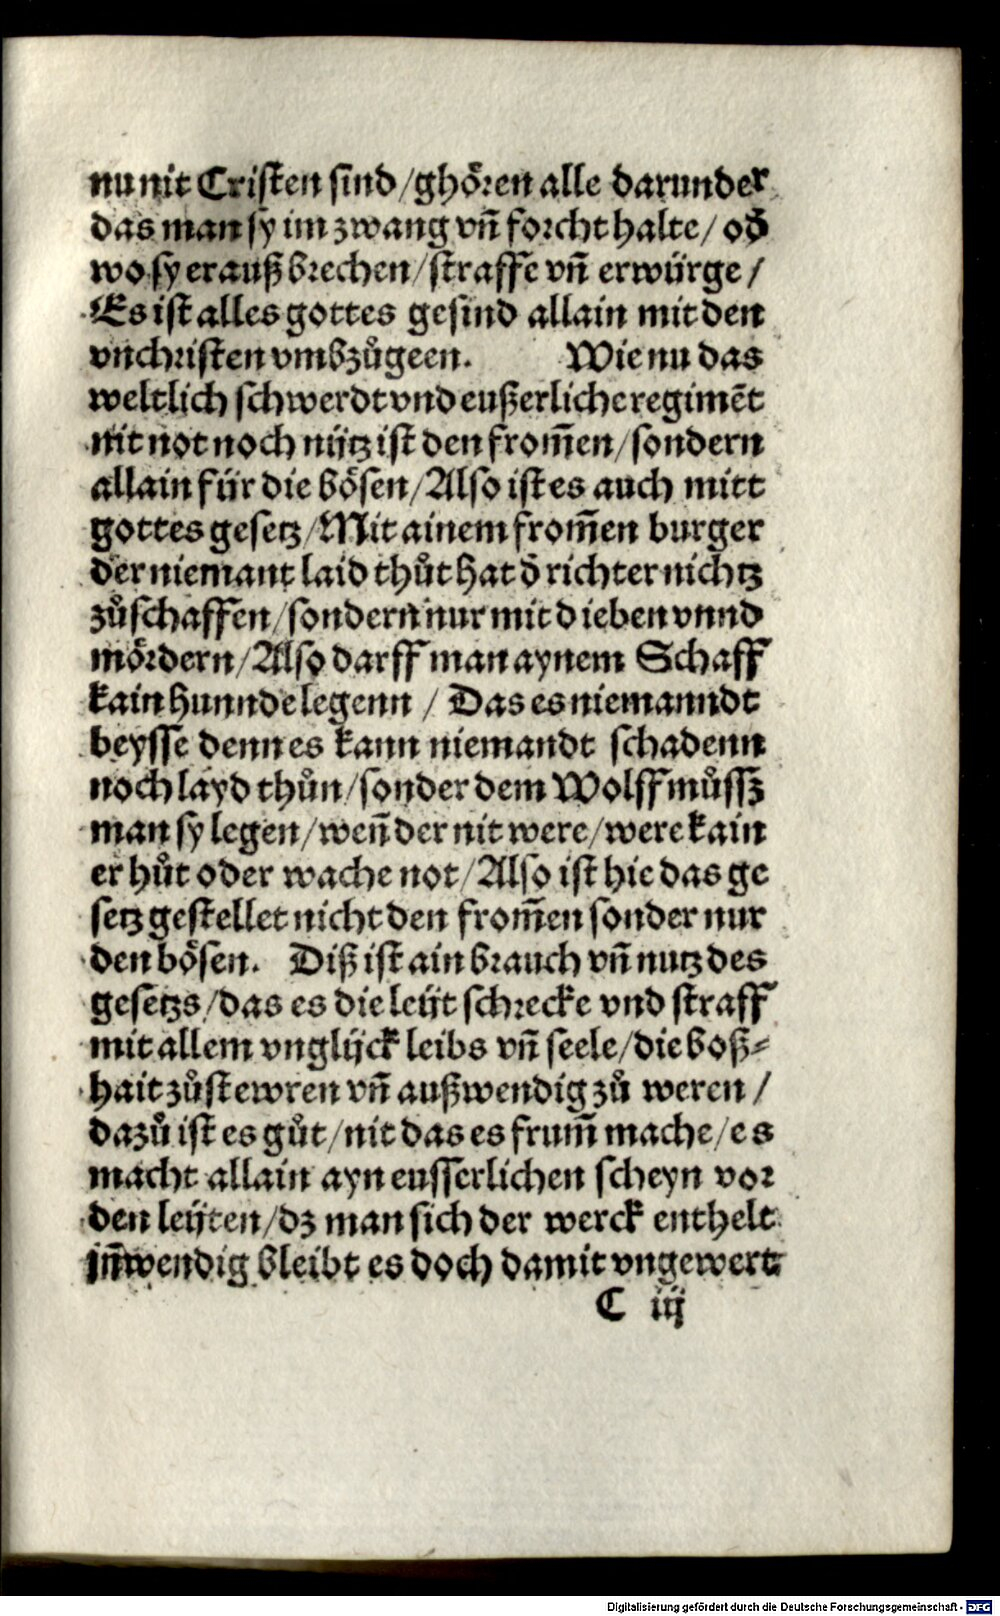 nu nit Cristen sind/ghören alle darunder
das man sy im zwang vñ forcht halte/ od̄
wo sy erauß brechen/straffe vñ erwürge/
Es ist alles gottes gesind allain mit den
vnchristen vmbzůgeen. Wie nu das
weltlich schwerdt vnd eußerliche regimēt
nit not noch nütz ist den from̄en/sondern
allain für die bösen/Also ist es auch mitt
gottes gesetz/Mit ainem from̄en burger
der niemant laid thůt hat d̄ richter nichtz
zůschaffen/sondern nur mit dieben vnnd
mördern/Also darff man aynem Schaff
kain hunnde legenn / Das es niemanndt
beysse denn es kann niemandt schadenn
noch layd thůn/sonder dem Wolff můssz
man sy legen/weñ der nit were/were kain
er hůt oder wache not/Also ist hie das ge
setz gestellet nicht den from̄en sonder nur
den bösen. Diß ist ain brauch vñ nutz des
gesetzs/das es die leüt schrecke vnd straff
mit allem vnglück leibs vñ seele/die boß⸗
hait zůstewren vñ außwendig zů weren/
dazů ist es gůt/nit das es frum̄ mache/es
macht allain ayn eusserlichen scheyn vor
den leüten/dz man sich der werck enthelt
jñwendig bleibt es doch damit vngewert
C iij
Digitalisierung gefördert durch die Deutsche Forschungsgemeinschaft - DFG